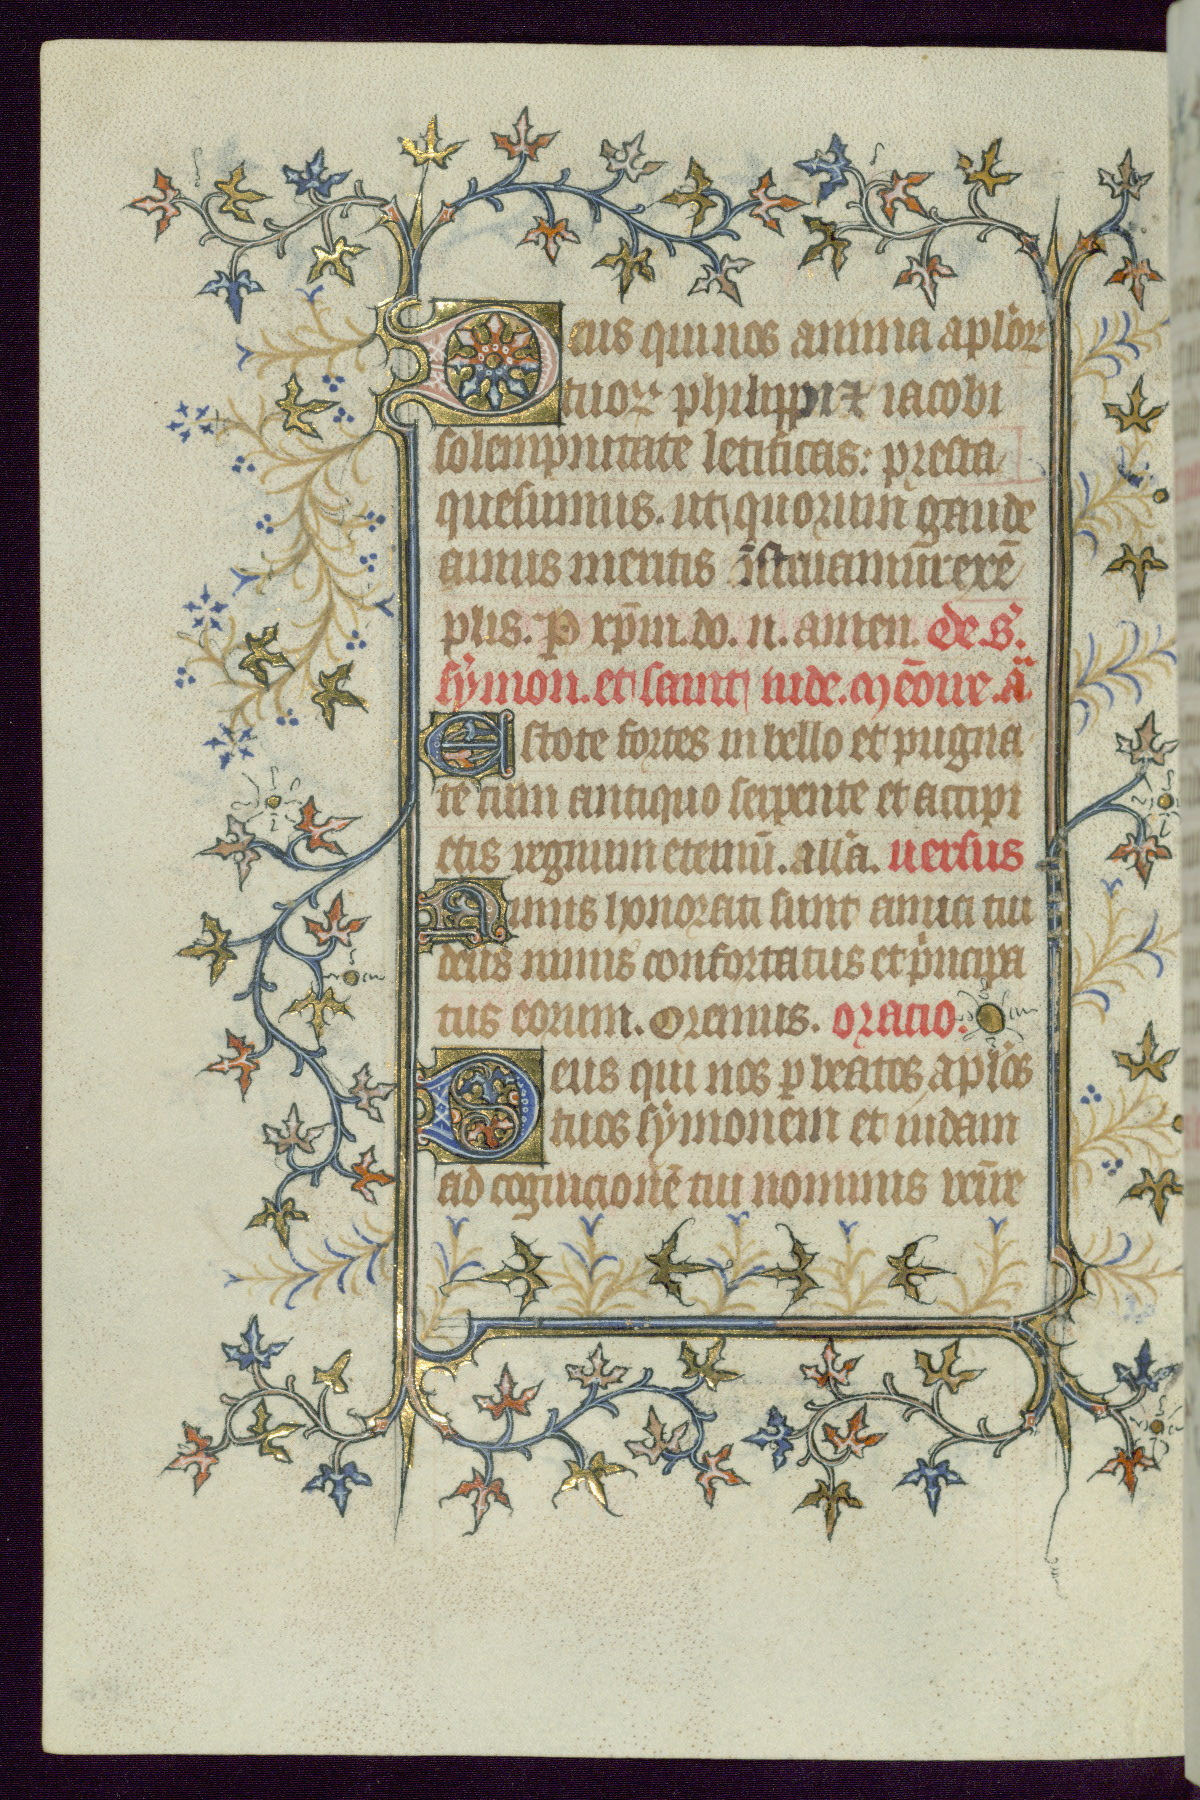 Deus qui nos annua aplōꝝ
tuoꝝ philippi ⁊ iacobi
solempnitate letificas: presta
quesumus. ut quorum gaude
amus meritis īstruamur exē
plis. P xp̄m. do. n. amen. de s.
symon. et saint iude. memōire. ā
Estote fortes in bello et pugna
te cum antiquo serpente et accipi
etis regnum eternū. all̄a. uersus
Nimis honorati sunt amici tui
deus nimis confortatus est p̄ncipa
tus eorum. Oremus. oracio.
Deus qui nos ꝑ beatos apl̄os
tuos symonem et iudam
ad cognicionē tui nominis ueni͞re